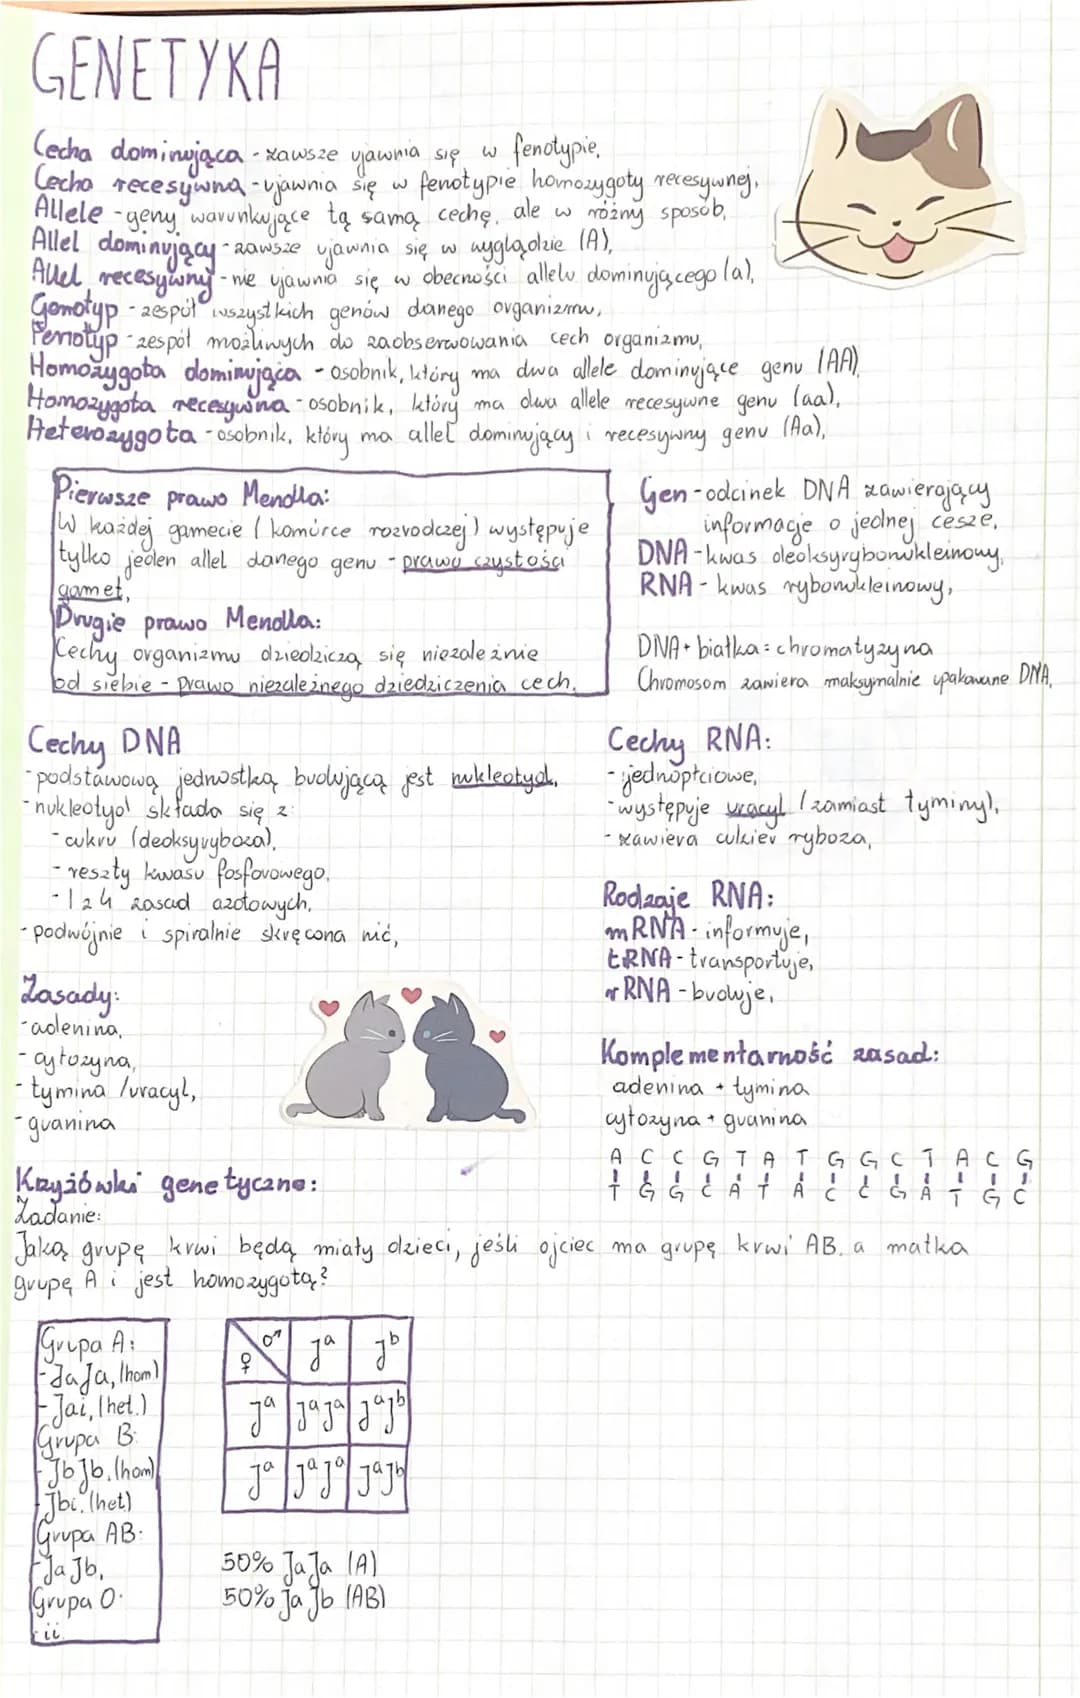 GENETYKA
Cecha dominująca - zawsze ujawnia się w fenotypie,
Cecha recesywna - ujawnia się w fenotypie homozygoty recesywnej,
Allele - geny warunkujące tą samą cechę, ale w różny sposób,
Allel dominujący - zawsze ujawnia się w wyglądzie (A),
Allel recesywny - nie ujawnia się w obecności allelu dominującego (a),
Genotyp - zespół wszystkich genów danego organizmu,
Fenotyp - zespół możliwych do zaobserwowania cech organizmu,
Homozygota dominująca - osobnik, który ma dwa allele dominujące genu (AA)
Homozygota recesywna - osobnik, który ma dwa allele recesywne genu (aa),
Heterozygota - osobnik, który ma allel dominujący i recesywny genu (Aa),
Pierwsze prawo Mendla:
W każdej gamecie (komórce rozrodczej) występuje
tylko jeden allel danego genu - prawo czystości
gamet,
Drugie prawo Mendla:
Cechy organizmu dziedziczą się niezależnie
od siebie - prawo niezależnego dziedziczenia cech.
Gen - odcinek DNA zawierający
informacje o jednej cesze,
DNA - kwas deoksyrybonukleinowy,
RNA - kwas rybonukleinowy,
DNA + białka = chromatyzyna
Chromosom zawiera maksymalnie upakowane DNA,
Cechy DNA
- podstawową jednostką budującą jest nukleotyd,
- nukleotyd składa się z:
- cukru (deoksyryboza),
- reszty kwasu fosforowego,
- 1 z 4 zasad azotowych,
- podwójnie i spiralnie skręcona nić,
Zasady:
- adenina,
- cytozyna,
- tymina /uracyl,
- guanina
Cechy RNA:
- jednopłciowe,
- występuje uracyl (zamiast tyminy),
- zawiera cukier ryboza,
Rodzaje RNA:
mRNA - informuje,
tRNA - transportuje,
rRNA - buduje,
Komplementarność zasad:
adenina + tymina
cytozyna + guanina
A C C G T A T G G C T A C G
T G G C A T A C C G A T G C
Krzyżówki genetyczne:
Zadanie:
Jaką grupę krwi będą miały dzieci, jeśli ojciec ma grupę krwi AB, a matka
grupę A i jest homozygotą?
Grupa A:
- JaJa, (hom)
- Jai, (het.)
Grupa B:
- JbJb, (hom)
- Jbi, (het)
Grupa AB:
- JaJb,
Grupa O:
- ii
♀ ♂ Jᵃ Jᵇ
Jᵃ JᵃJᵃ JᵃJᵇ
Jᵃ JᵃJᵃ JᵃJᵇ
50% JaJa (A)
50% JaJb (AB)